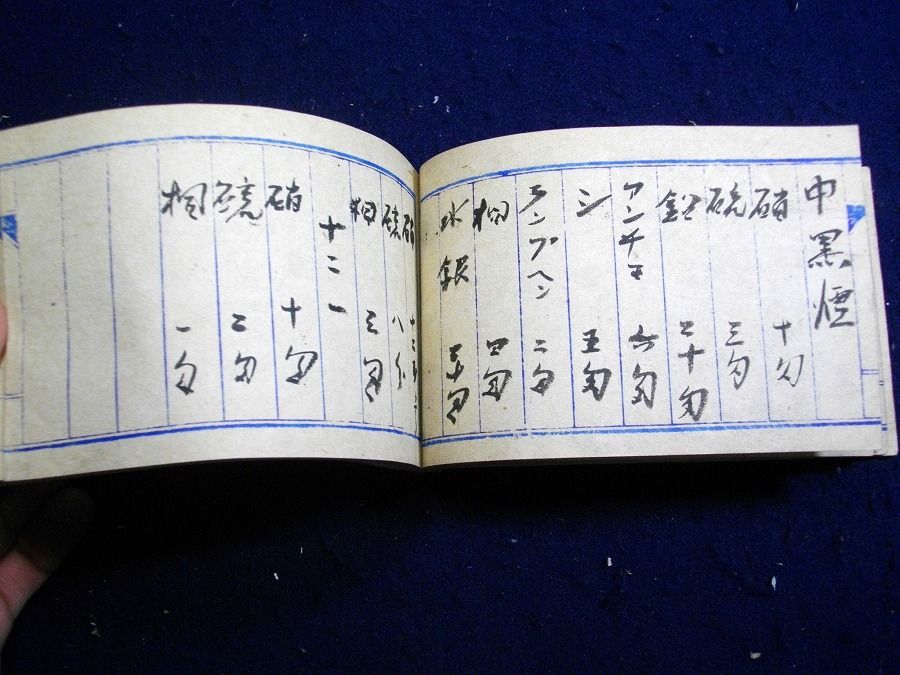 中黒煙
硝 十匁
硫 三匁
二十匁
アンチモ 六匁
シ 五匁
ランプヘン 二匁
桐 四匁
水銀
硝
硫 八分
桐 三匁
十二一
硝 十匁
硫 二匁
桐 一匁